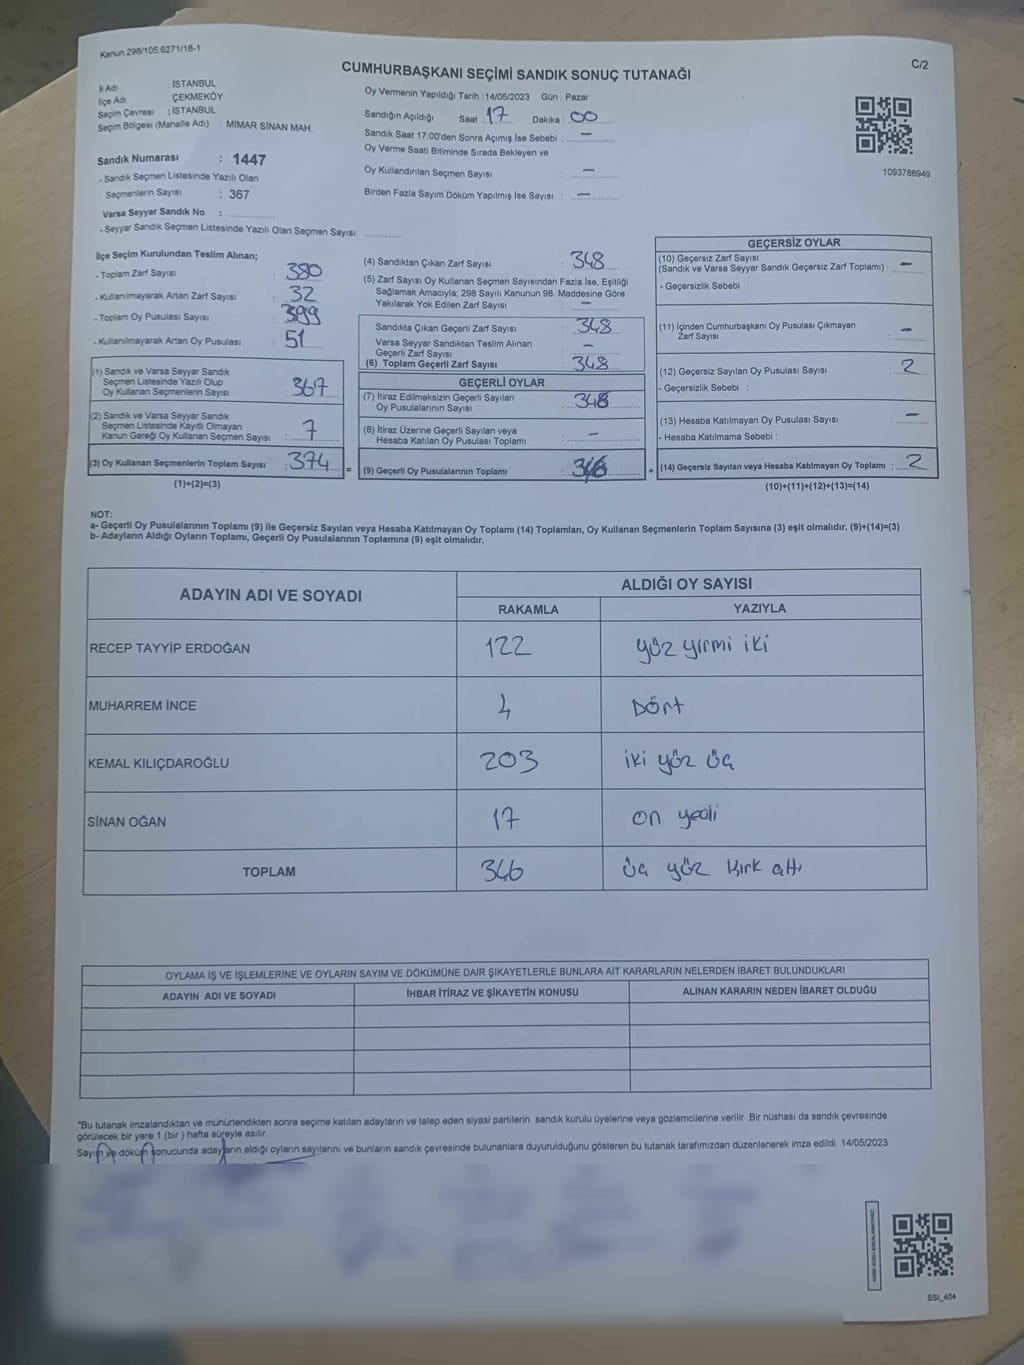 Kanun.298/105,6271/18-1
C/2
CUMHURBAŞKANI SEÇİMİ SANDIK SONUÇ TUTANAĞI
İl Adı : İSTANBUL
İlçe Adı : ÇEKMEKÖY
Seçim Çevresi : İSTANBUL
Seçim Bölgesi (Mahalle Adı) : MİMAR SİNAN MAH.
Sandık Numarası : 1447
- Sandık Seçmen Listesinde Yazılı Olan
Seçmenlerin Sayısı : 367
Varsa Seyyar Sandık No :
- Seyyar Sandık Seçmen Listesinde Yazılı Olan Seçmen Sayısı:
Oy Vermenin Yapıldığı Tarih :14/05/2023 Gün : Pazar
Sandığın Açıldığı Saat : 17 Dakika : 00
Sandık Saat 17:00'den Sonra Açımış İse Sebebi : -
Oy Verme Saati Bitiminde Sırada Bekleyen ve
Oy Kullandırılan Seçmen Sayısı : -
Birden Fazla Sayım Döküm Yapılmış İse Sayısı : -
1093788949
İlçe Seçim Kurulundan Teslim Alınan;
- Toplam Zarf Sayısı : 380
- Kullanılmayarak Artan Zarf Sayısı : 32
- Toplam Oy Pusulası Sayısı : 399
- Kullanılmayarak Artan Oy Pusulası : 51
(1) Sandık ve Varsa Seyyar Sandık
Seçmen Listesinde Yazılı Olup
Oy Kullanan Seçmenlerin Sayısı : 367
(2) Sandık ve Varsa Seyyar Sandık
Seçmen Listesinde Kayıtlı Olmayan
Kanun Gereği Oy Kullanan Seçmen Sayısı : 7
(3) Oy Kullanan Seçmenlerin Toplam Sayısı : 374
(1)+(2)=(3)
(4) Sandıktan Çıkan Zarf Sayısı : 348
(5) Zarf Sayısı Oy Kullanan Seçmen Sayısından Fazla İse, Eşitliği
Sağlamak Amacıyla; 298 Sayılı Kanunun 98. Maddesine Göre
Yakılarak Yok Edilen Zarf Sayısı : -
Sandıkta Çıkan Geçerli Zarf Sayısı : 348
Varsa Seyyar Sandıktan Teslim Alınan
Geçerli Zarf Sayısı : -
(6) Toplam Geçerli Zarf Sayısı : 348
GEÇERLİ OYLAR
(7) İtiraz Edilmeksizin Geçerli Sayılan
Oy Pusulalarının Sayısı : 346
(8) İtiraz Üzerine Geçerli Sayılan veya
Hesaba Katılan Oy Pusulası Toplamı : -
= (9) Geçerli Oy Pusulalarının Toplamı : 346
GEÇERSİZ OYLAR
(10) Geçersiz Zarf Sayısı
(Sandık ve Varsa Seyyar Sandık Geçersiz Zarf Toplamı) : -
- Geçersizlik Sebebi :
(11) İçinden Cumhurbaşkanı Oy Pusulası Çıkmayan
Zarf Sayısı : -
(12) Geçersiz Sayılan Oy Pusulası Sayısı : 2
- Geçersizlik Sebebi :
(13) Hesaba Katılmayan Oy Pusulası Sayısı : -
- Hesaba Katılmama Sebebi :
+ (14) Geçersiz Sayılan veya Hesaba Katılmayan Oy Toplamı : 2
(10)+(11)+(12)+(13)=(14)
NOT:
a- Geçerli Oy Pusulalarının Toplamı (9) ile Geçersiz Sayılan veya Hesaba Katılmayan Oy Toplamı (14) Toplamları, Oy Kullanan Seçmenlerin Toplam Sayısına (3) eşit olmalıdır. (9)+(14)=(3)
b- Adayların Aldığı Oyların Toplamı, Geçerli Oy Pusulalarının Toplamına (9) eşit olmalıdır.
ADAYIN ADI VE SOYADI
ALDIĞI OY SAYISI
RAKAMLA YAZIYLA
RECEP TAYYİP ERDOĞAN 122 yüz yirmi iki
MUHARREM İNCE 4 Dört
KEMAL KILIÇDAROĞLU 203 iki yüz üç
SİNAN OĞAN 17 on yedi
TOPLAM 346 üç yüz kırk altı
OYLAMA İŞ VE İŞLEMLERİNE VE OYLARIN SAYIM VE DÖKÜMÜNE DAİR ŞİKAYETLERLE BUNLARA AİT KARARLARIN NELERDEN İBARET BULUNDUKLARI
ADAYIN ADI VE SOYADI İHBAR İTİRAZ VE ŞİKAYETİN KONUSU ALINAN KARARIN NEDEN İBARET OLDUĞU
*Bu tutanak imzalandıktan ve mühürlendikten sonra seçime katılan adayların ve talep eden siyasi partilerin sandık kurulu üyelerine veya gözlemcilerine verilir. Bir nüshası da sandık çevresinde
görülecek bir yere 1 (bir) hafta süreyle asılır.
Sayım ve döküm sonucunda adayların aldığı oyların sayılarını ve bunların sandık çevresinde bulunanlara duyurulduğunu gösteren bu tutanak tarafımızdan düzenlenerek imza edildi. 14/05/2023
SSI_404